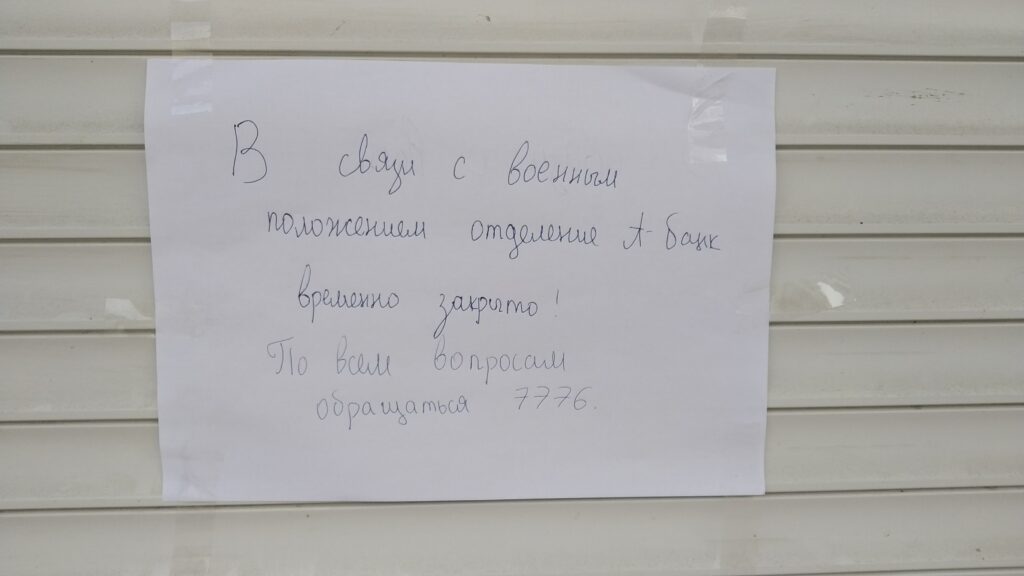 В связи с военным
положением отделение А-банк
временно закрыто!
По всем вопросам
обращаться 7776.